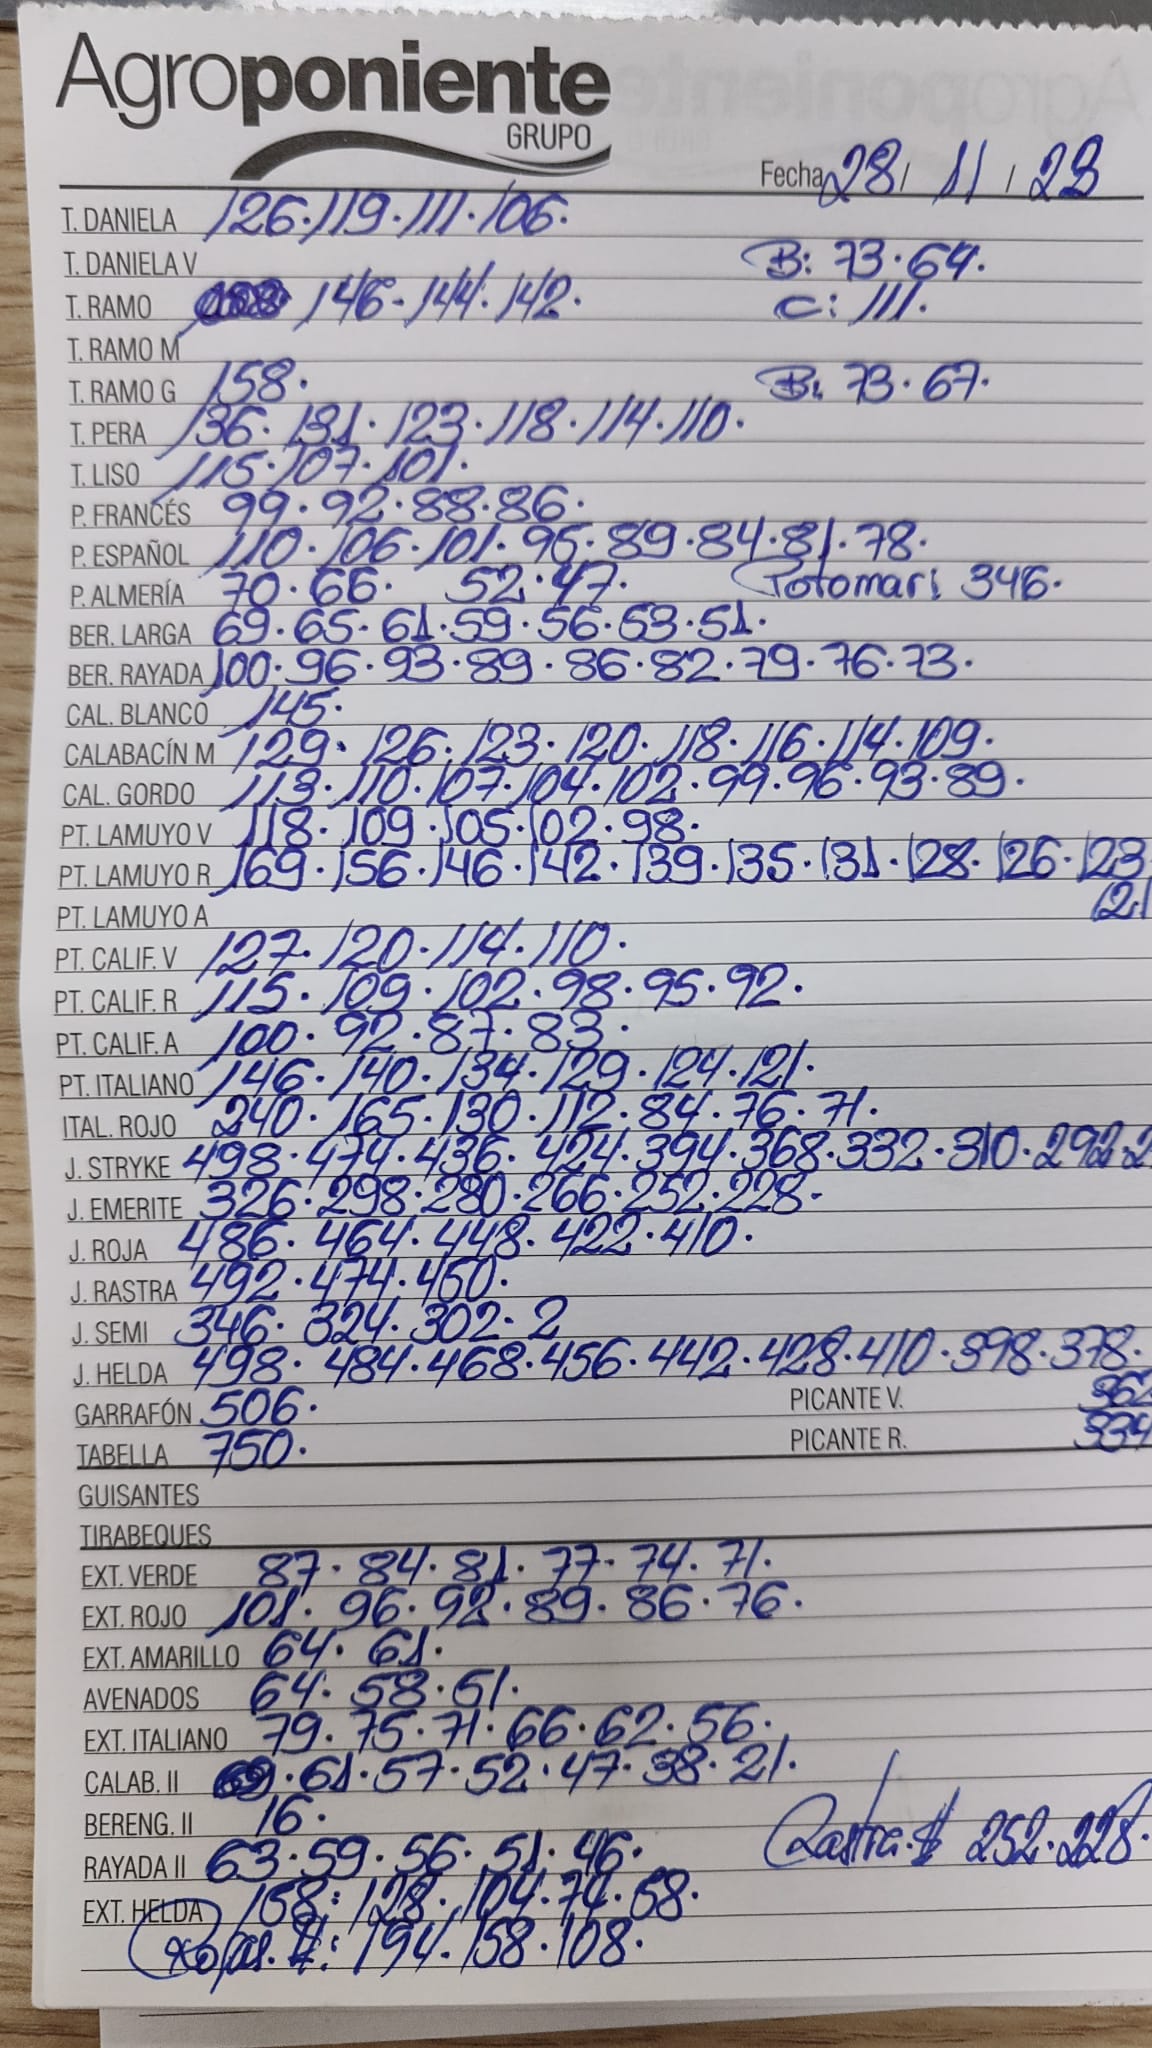 Agroponiente
GRUPO
Fecha 28/ 11 / 23
T. DANIELA 126·119·111·106·
T. DANIELA V B: 73·64·
T. RAMO 146-144·142· C: 111·
T. RAMO M
T. RAMO G 158· B: 73·67·
T. PERA 136·131·123·118·114·110·
T. LISO 115·107·101·
P. FRANCÉS 99·92·88·86·
P. ESPAÑOL 110·106·101·95·89·84·81·78·
P. ALMERÍA 70·66· 52·47· 346·
BER. LARGA 69·65·61·59·56·53·51·
BER. RAYADA 100·96·93·89·86·82·79·76·73·
CAL. BLANCO 145·
CALABACÍN M 129·126·123·120·118·116·114·109·
CAL. GORDO 113·110·107·104·102·99·96·93·89·
PT. LAMUYO V 118·109·105·102·98·
PT. LAMUYO R 169·156·146·142·139·135·131·128·126·123
121
PT. LAMUYO A
PT. CALIF. V 127·120·114·110·
PT. CALIF. R 115·109·102·98·95·92·
PT. CALIF. A 100·92·87·83·
PT. ITALIANO 146·140·134·129·124·121·
ITAL. ROJO 240·165·130·112·84·76·71·
J. STRYKE 498·474·436·424·394·368·332·310·292·2
J. EMERITE 326·298·280·266·252·228-
J. ROJA 486·464·448·422·410·
J. RASTRA 492·474·450·
J. SEMI 346·324·302·2
J. HELDA 498·484·468·456·442·428·410·398·378·
GARRAFÓN 506· PICANTE V. 362
TABELLA 750· PICANTE R. 334
GUISANTES
TIRABEQUES
EXT. VERDE 87·84·81·77·74·71·
EXT. ROJO 101·96·92·89·86·76·
EXT. AMARILLO 64·61·
AVENADOS 64·58·51·
EXT. ITALIANO 79·75·71·66·62·56·
CALAB. II 69·61·57·52·47·38·21·
BERENG. II 16·
RAYADA II 63·59·56·51·46· Rastra 252·228·
EXT. HELDA 158·128·104·74·58·
Rojas 194·158·108·